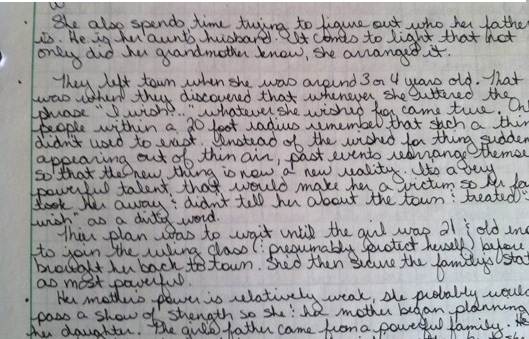 She also spends time trying to figure out who her father
is. He is her aunt's husband. It comes to light that not
only did her grandmother know, she arranged it.
They left town when she was around 3 or 4 years old. That
was when they discovered that whenever she uttered the
phrase "I wish..." whatever she wished for came true. On
people within a 20 foot radius remember that such a thin
didn't used to exist. Instead of the wished for thing sudden
appearing out of thin air, past events rearrange themse
so that the new thing is now a new reality. Its a very
powerful talent, that would make her a victim so her fa
took her away & didn't tell her about the town & treated "
wish" as a dirty word.
Their plan was to wait until the girl was 21 & old en
to join the ruling class (& presumably protect herself) before
brought her back to town. She'd then secure the family's stat
as most powerful.
Her mother's power is relatively weak, she probably would
pass a show of strength so she & her mother began planning
her daughter. The girl's father came from a powerful family. He